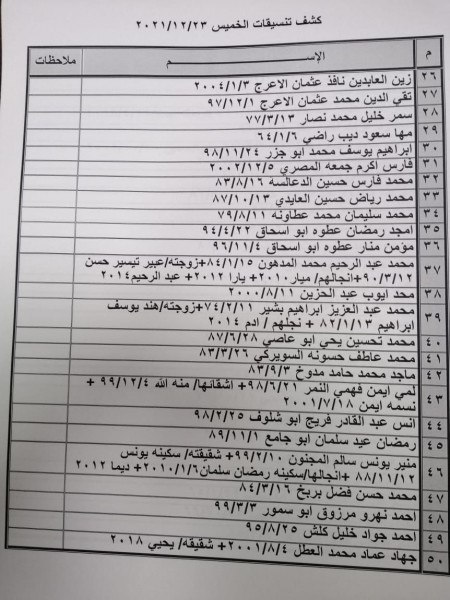 كشف تنسيقات الخميس ٢٠٢١/١٢/٢٣
م الإســـم ملاحظات
٢٦ زين العابدين نافذ عثمان الاعرج ٢٠٠٤/١/٣
٢٧ تقي الدين محمد عثمان الاعرج ٩٧/١٢/١
٢٨ سمر خليل محمد نصار ٧٧/٣/١٣
٢٩ مها سعود ديب راضي ٦٤/١/٦
٣٠ ابراهيم يوسف محمد ابو جزر ٩٨/١١/٢٤
٣١ فارس اكرم جمعه المصري ٢٠٠٢/١٢/٥
٣٢ محمد فارس حسين الدعالسه ٨٣/٨/١٦
٣٣ محمد رياض حسين العايدي ٨٧/١٠/١٣
٣٤ محمد سليمان محمد عطاونه ٧٩/٨/١١
٣٥ امجد رمضان عطوه ابو اسحاق ٩٤/٤/٢٢
٣٦ مؤمن منار عطوه ابو اسحاق ٩٦/١١/٤
٣٧ محمد عبد الرحيم محمد المدهون ٨٤/١/١٥+زوجته/عبير تيسير حسن
٩٠/٣/١٢+انجالهم/ ميار٢٠١٠+ يارا ٢٠١٢+ عبد الرحيم٢٠١٤
٣٨ محد ايوب عبد الحزين ٢٠٠٠/٨/١١
٣٩ محمد عبد العزيز ابراهيم بشير ٧٤/٢/١١+زوجته/هند يوسف
ابراهيم ٨٢/١/١٣ + نجلهم / ادم ٢٠١٤
٤٠ محمد تحسين يحي ابو عاصي ٨٧/٦/٢٨
٤١ محمد عاطف حسونه السويركي ٨٣/٣/٢٦
٤٢ ماجد محمد حامد مدوخ ٨٣/٩/٣
٤٣ لمي ايمن فهمي النمر ٩٨/٦/٢١+ اشقائها/ منه الله ٩٩/١٢/٤ +
نسمه ايمن ٢٠٠١/٧/١٨
٤٤ انس عبد القادر فريج ابو شلوف ٩٨/٢/٢٥
٤٥ رمضان عيد سلمان ابو جامع ٨٩/١١/١
٤٦ منير يونس سالم المجنون ٩٩/٢/١٠+ شقيقته/ سكينه يونس
٨٨/١١/١٢ +انجالها/سكينه رمضان سلمان٢٠١٠/١/٦+ ديما ٢٠١٢
٤٧ محمد حسن فضل بربخ ٨٤/٣/١٦
٤٨ احمد نهرو مرزوق ابو سمور ٩٩/٣/٣
٤٩ احمد جواد خليل كلش ٩٥/٨/٢٥
٥٠ جهاد عماد محمد العطل ٢٠٠١/٨/٤+ شقيقه/ يحيي ٢٠١٨